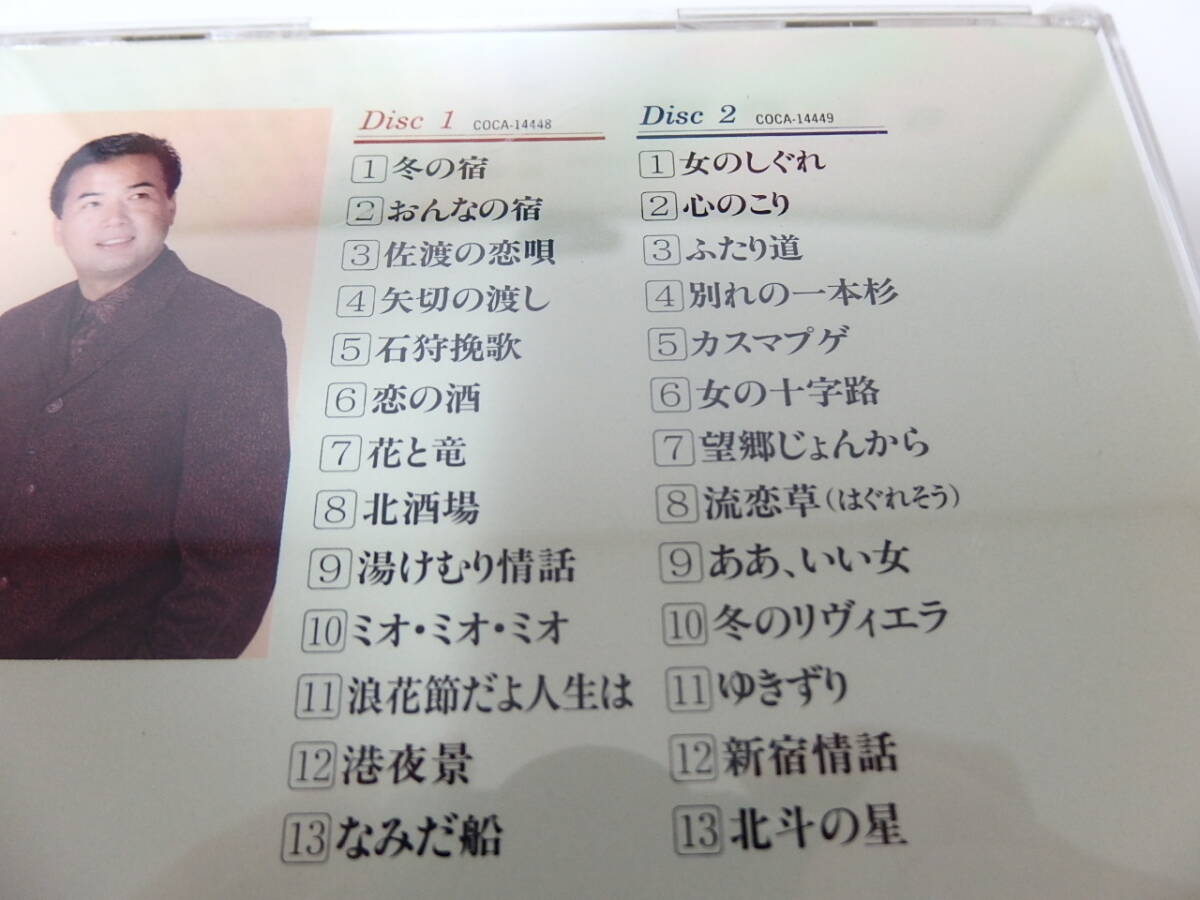 Disc 1 COCA-14448
1 冬の宿
2 おんなの宿
3 佐渡の恋唄
4 矢切の渡し
5 石狩挽歌
6 恋の酒
7 花と竜
8 北酒場
9 湯けむり情話
10 ミオ・ミオ・ミオ
11 浪花節だよ人生は
12 港夜景
13 なみだ船
Disc 2 COCA-14449
1 女のしぐれ
2 心のこり
3 ふたり道
4 別れの一本杉
5 カスマプゲ
6 女の十字路
7 望郷じょんから
8 流恋草(はぐれそう)
9 ああ、いい女
10 冬のリヴィエラ
11 ゆきずり
12 新宿情話
13 北斗の星